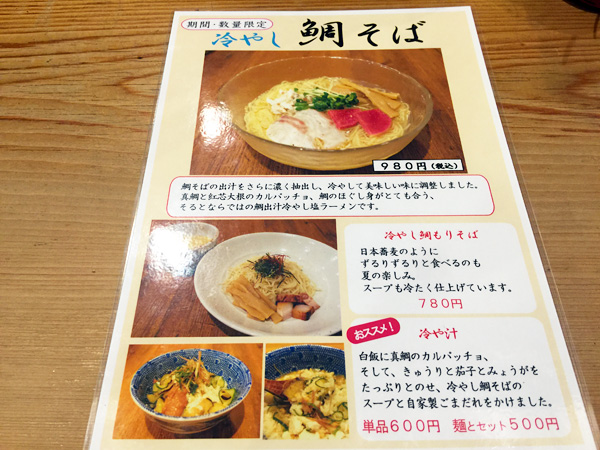 期間・数量限定
冷やし 鯛そば
980円(税込)
鯛そばの出汁をさらに濃く抽出し、冷やして美味しい味に調整しました。
真鯛と紅芯大根のカルパッチョ、鯛のほぐし身がとても合う、
そるとならではの鯛出汁冷やし塩ラーメンです。
冷やし鯛もりそば
日本蕎麦のように
ずるりずるりと食べるのも
夏の楽しみ。
スープも冷たく仕上げています。
780円
おススメ!
冷や汁
白飯に真鯛のカルパッチョ、
そして、きゅうりと茄子とみょうがを
たっぷりとのせ、冷やし鯛そばの
スープと自家製ごまだれをかけました。
単品600円 麺とセット500円